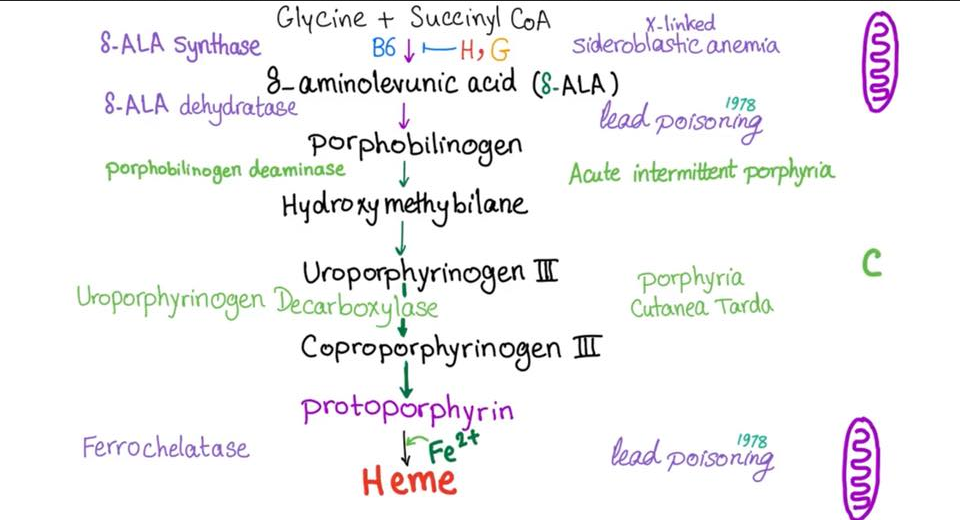 Glycine + Succinyl CoA
δ-ALA Synthase
B6
H, G
X-linked
sideroblastic anemia
δ-aminolevunic acid (δ-ALA)
δ-ALA dehydratase
1978
lead poisoning
Porphobilinogen
porphobilinogen deaminase
Acute intermittent porphyria
Hydroxymethybilane
Uroporphyrinogen III
Uroporphyrinogen Decarboxylase
Porphyria
Cutanea Tarda
C
Coproporphyrinogen III
protoporphyrin
Ferrochelatase
Fe²⁺
1978
lead poisoning
Heme